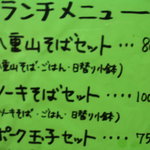 ランチメニュー
八重山そばセット‥‥8
八重山そば・ごはん・日替り小鉢)
ソーキそばセット‥‥100
ソーキそば・ごはん・日替り小鉢)
ポーク玉子セット‥‥75